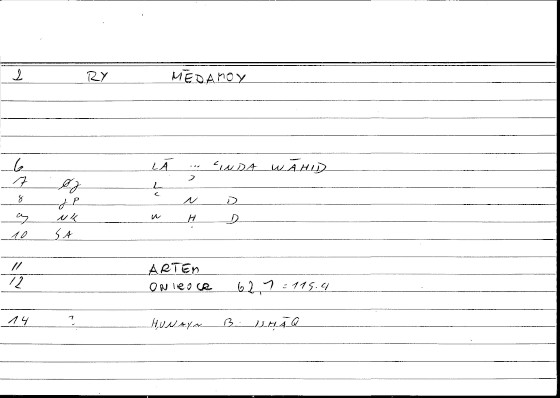 1 RY MĒDAMOY
6 LĀ ... ʿINDA WĀHID
7 L ʾ
8 JP ʿ N D
9 NK W H D
10 SA
11 ARTEM
12 ONIROCR 62,7 = 115.4
14 ? HUNAYN B. ISHĀQ